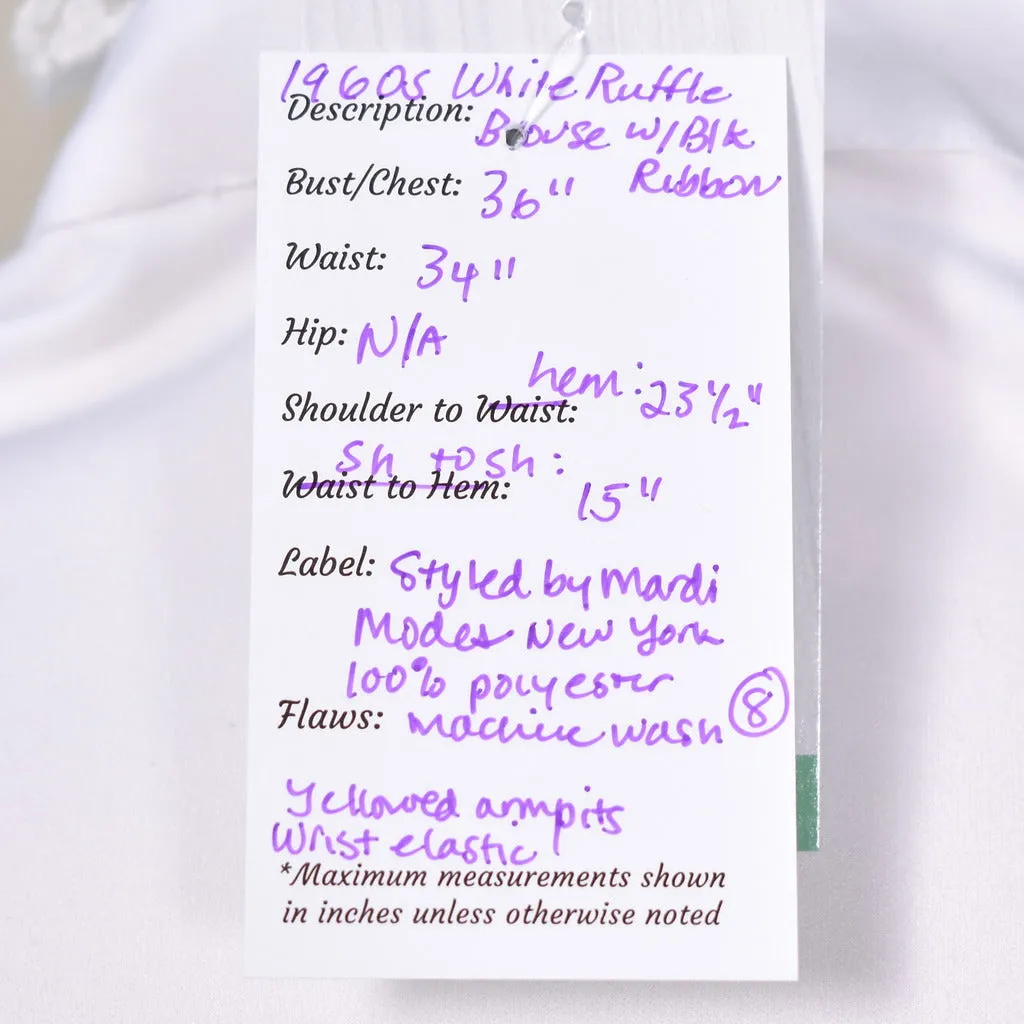 1960s White Ruffle
Description: Blouse w/Blk
Bust/Chest: 36" Ribbon
Waist: 34"
Hip: N/A
hem:
Shoulder to Waist: 23 1/2"
Sh to sh:
Waist to Hem: 15"
Label: Styled by Mardi
Modes New York
100% polyester
Flaws: machine wash 8
Yellowed armpits
Wrist elastic
*Maximum measurements shown
in inches unless otherwise noted